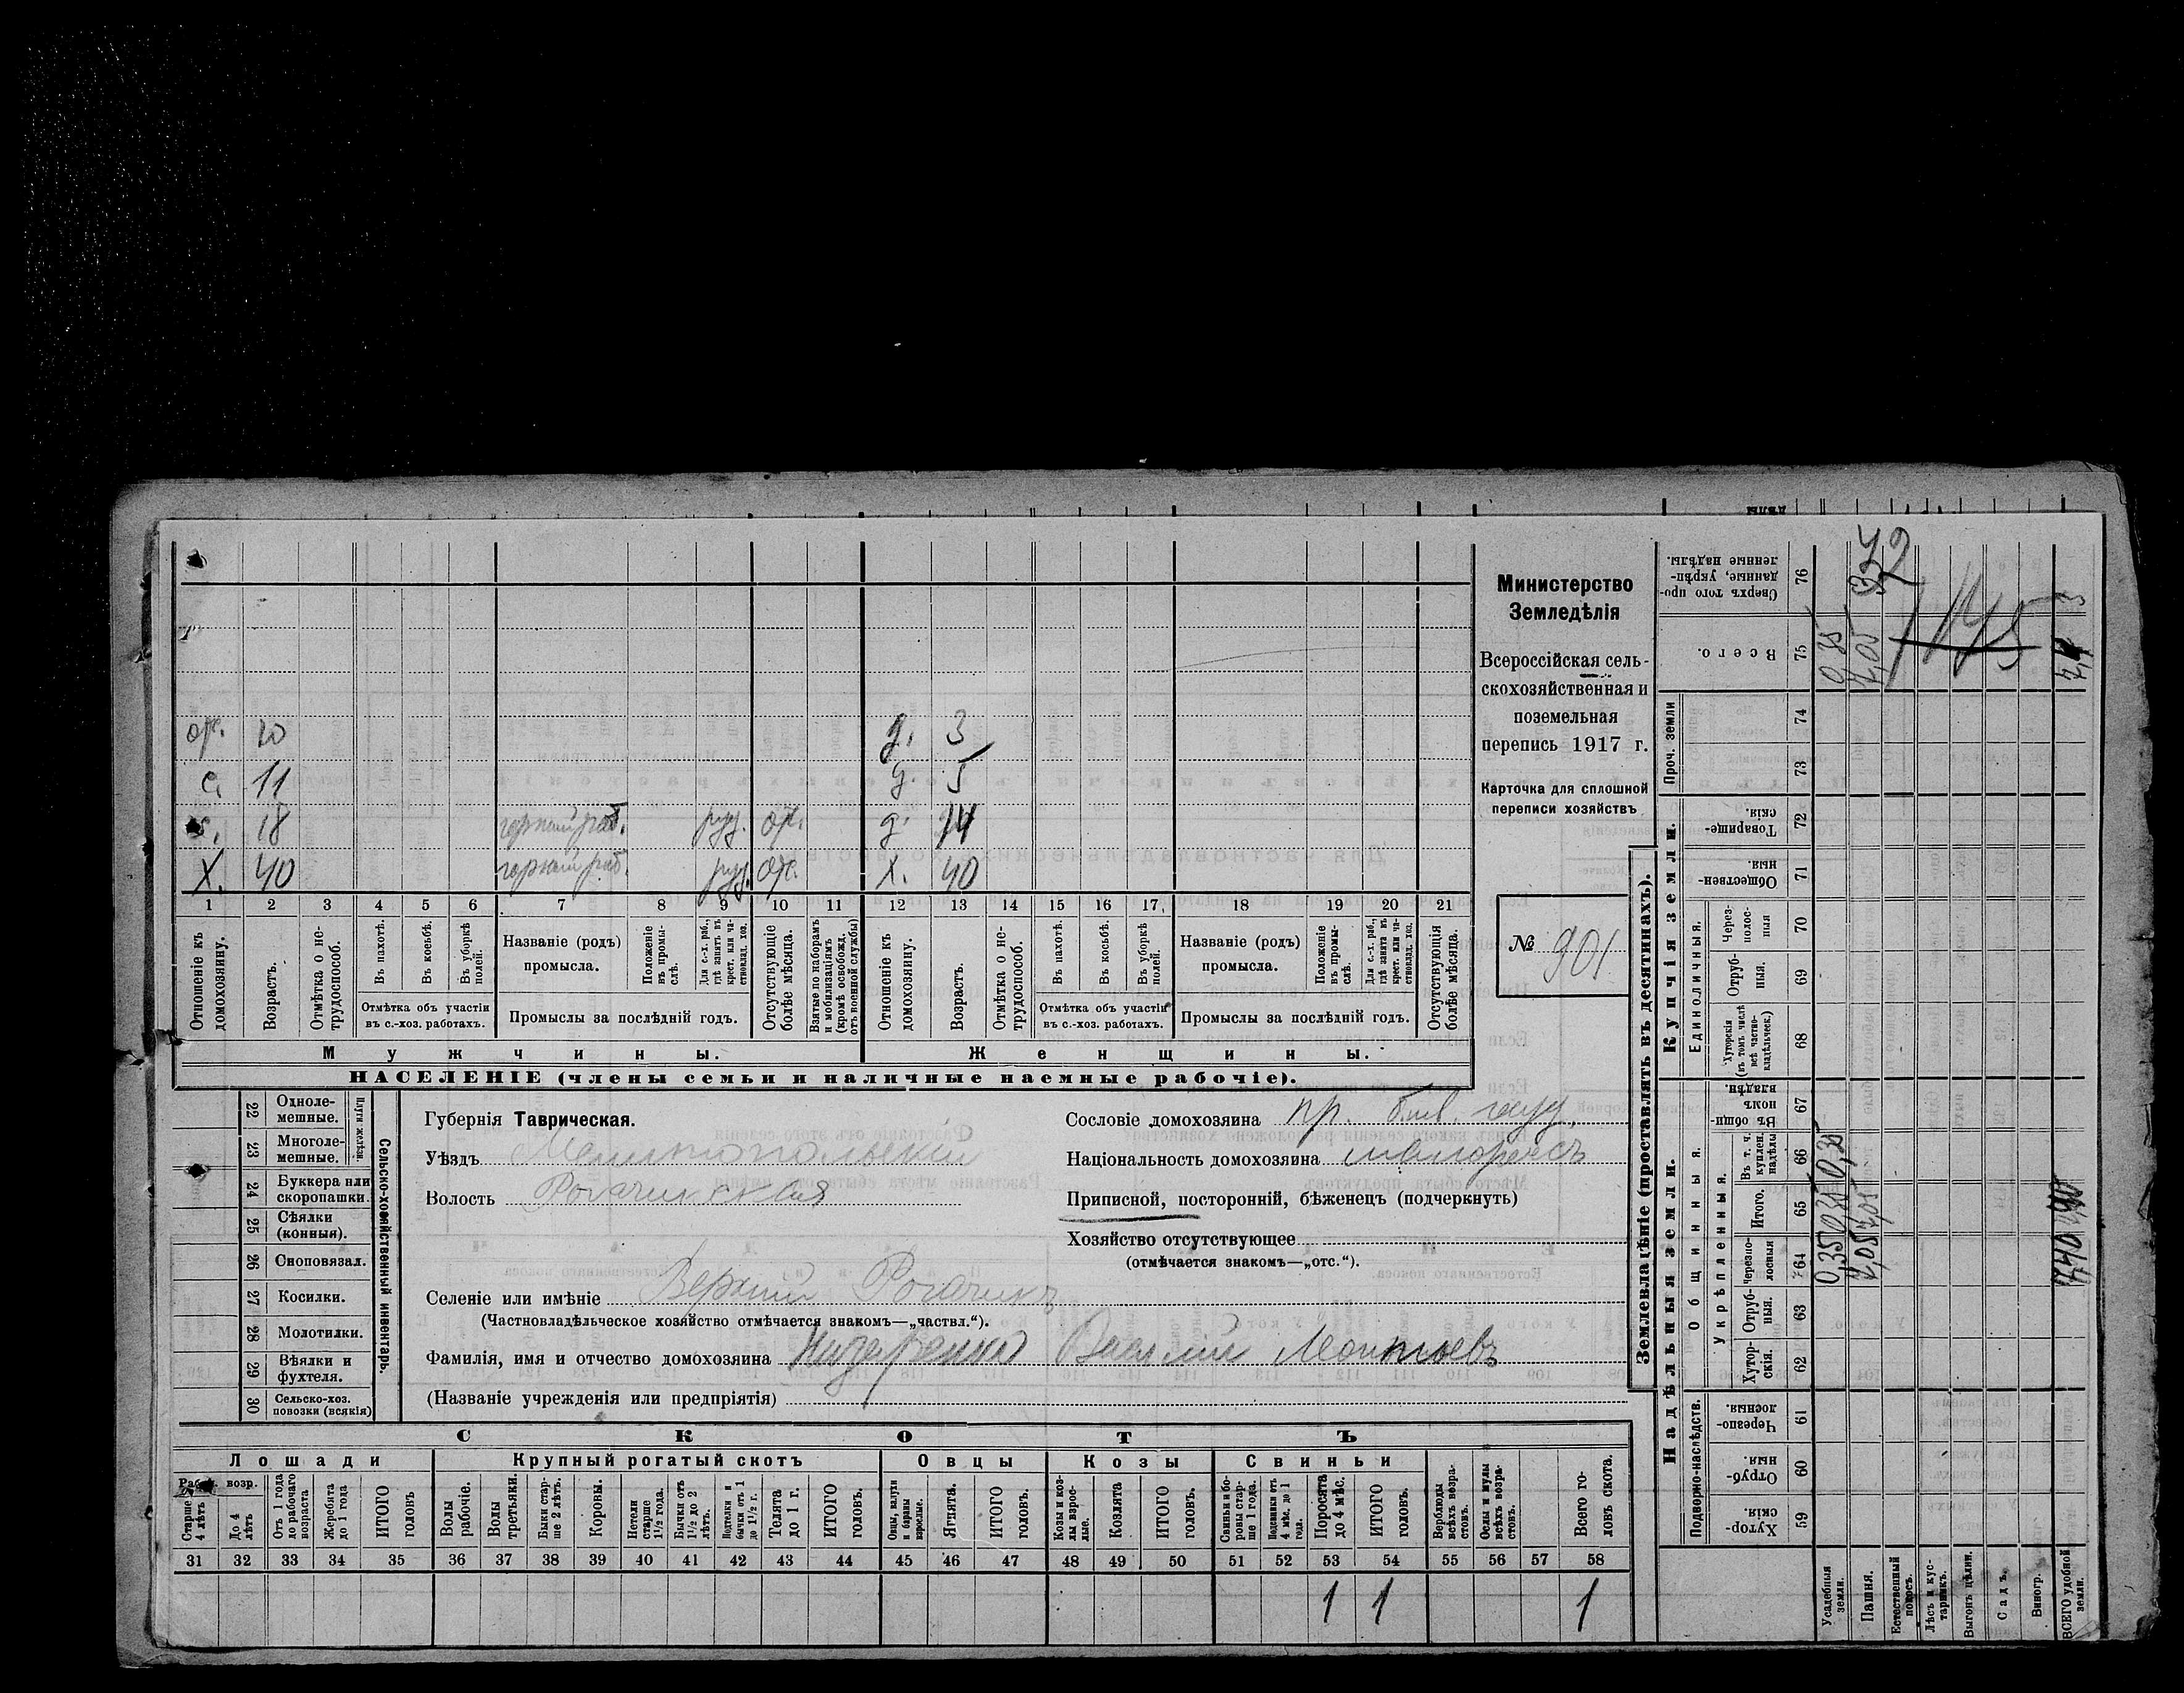 ор. 10 д. 3
с. 11 д. 5
с. 18 горный раб. руд. отс. д. 14
Х. 40 горный раб. руд. отс. Х. 40
1 2 3 4 5 6 7 8 9 10 11 12 13 14 15 16 17 18 19 20 21
Отношеніе къ домохозяину.
Возрастъ.
Отмѣтка о нетрудоспособ.
Въ пахотѣ.
Въ косьбѣ.
Въ уборкѣ полей.
Отмѣтка объ участіи
въ с.-хоз. работахъ.
Названіе (родъ)
промысла.
Положеніе въ промыслѣ.
Для с.-х. раб., гдѣ занятъ въ крест. или частновлад. хоз.
Промыслы за послѣдній годъ.
Отсутствующіе болѣе мѣсяца.
Взятые по наборамъ и мобилизаціямъ (кромѣ освобожд. отъ военной службы)
Отношеніе къ домохозяину.
Возрастъ.
Отмѣтка о нетрудоспособ.
Въ пахотѣ.
Въ косьбѣ.
Въ уборкѣ полей.
Отмѣтка объ участіи
въ с.-хоз. работахъ.
Названіе (родъ)
промысла.
Положеніе въ промыслѣ.
Для с.-х. раб., гдѣ занята въ крест. или частновлад. хоз.
Промыслы за послѣдній годъ.
Отсутствующія болѣе мѣсяца.
Мужчины. Женщины.
НАСЕЛЕНІЕ (члены семьи и наличные наемные рабочіе).
Министерство
Земледѣлія
Всероссійская сель-
скохозяйственная и
поземельная
перепись 1917 г.
Карточка для сплошной
переписи хозяйствъ
№ 901
22 Одноле-
мешные.
23 Многоле-
мешные.
Плуги желѣзн.
24 Буккера или
скоропашки.
25 Сѣялки
(конныя).
26 Сноповязал.
27 Косилки.
28 Молотилки.
29 Вѣялки и
фухтеля.
30 Сельско-хоз.
повозки (всякія)
Сельско-хозяйственный инвентарь.
Губернія Таврическая.
Уѣздъ Мелитопольскій
Волость Рогачикская
Сословіе домохозяина пр. быв. госуд.
Національность домохозяина малороссъ
Приписной, посторонній, бѣженецъ (подчеркнуть)
Хозяйство отсутствующее
(отмѣчается знакомъ—„отс.“).
Селеніе или имѣніе Верхній Рогачикъ
(Частновладѣльческое хозяйство отмѣчается знакомъ—„частвл.“).
Фамилія, имя и отчество домохозяина Назаренко Василій Леонтьевъ
(Названіе учрежденія или предпріятія)
СКОТЪ
Лошади Крупный рогатый скотъ Овцы Козы Свиньи
Рабоч. возр.
Старше 4 лѣтъ
До 4 лѣтъ
Отъ 1 года до рабочаго возраста
Жеребята до 1 года
ИТОГО головъ
Волы рабочіе.
Волы третьяки.
Быки старше 2 лѣтъ.
Коровы.
Нетели старше 1½ года.
Бычки отъ 1½ до 2 лѣтъ.
Подтелки и бычки отъ 1 до 1½ г.
Телята до 1 г.
ИТОГО головъ.
Овцы, валухи и бараны взрослые.
Ягнята.
ИТОГО головъ.
Козы и козлы взрослые.
Козлята
ИТОГО головъ.
Свиньи и боровы старше 1 года.
Подсвинки отъ 4 мѣс. до 1 года.
Поросята до 4 мѣс.
ИТОГО головъ.
Верблюды всѣхъ возрастовъ.
Ослы и мулы всѣхъ возрастовъ.
Всего головъ скота.
31 32 33 34 35 36 37 38 39 40 41 42 43 44 45 46 47 48 49 50 51 52 53 54 55 56 57 58
1 1 1
Землевладѣніе (проставлять въ десятинахъ).
Надѣльныя земли. Купчія земли. Проч. земли
Подворно-наслѣдств.
Общинныя.
Укрѣпленныя.
Единоличныя.
59 Хуторскія
60 Отрубныя.
61 Черезполосныя.
62 Хуторскія.
63 Отрубныя.
64 Черезполосныя
65 Итого.
66 Въ т. ч. куплен. надѣлы
67 Въ общинномъ владѣн.
68 Хуторскія (въ томъ числѣ всѣ частновладѣльческ.)
69 Отрубныя.
70 Черезполосныя
71 Общественныя
72 Товарищескія.
73
74
75 Всего.
76 Сверхъ того проданные, укрѣпленные надѣлы.
Усадебныя земли. 0,35 0,35 0,35 0,35
Пашня. 7,05 7,05 7,05
Естественный покосъ.
Лѣсъ и кустарникъ.
Выгонъ цѣлин.
Садъ.
Виногр.
ВСЕГО удобной земли. 7,40 7,40